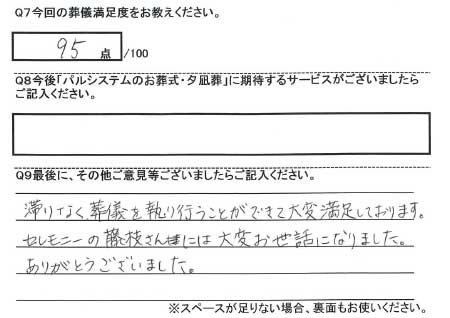 Q7今回の葬儀満足度をお教えください。
95 点 /100
Q8今後「パルシステムのお葬式・夕凪葬」に期待するサービスがございましたら
ご記入ください。
Q9最後に、その他ご意見等ございましたらご記入ください。
滞りなく葬儀を執り行うことができて大変満足しております。
セレモニーの藤枝さん様には大変お世話になりました。
ありがとうございました。
※スペースが足りない場合、裏面もお使いください。